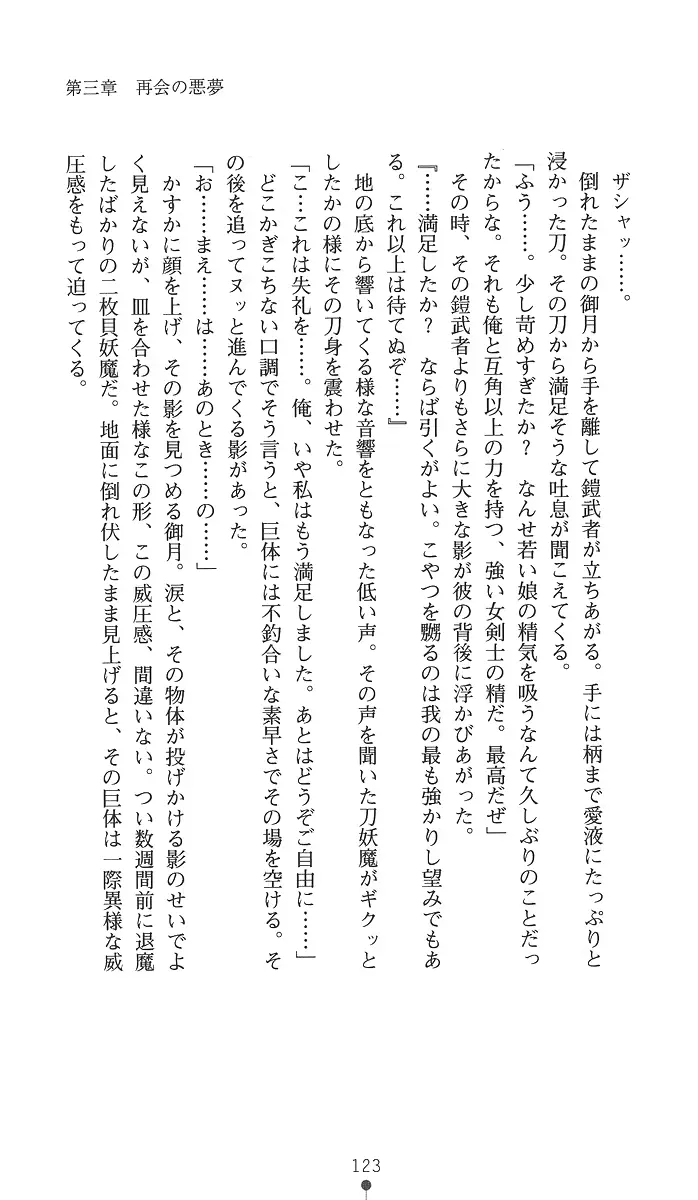 第三章　再会の悪夢
　ザシャッ……。
　倒れたままの御月から手を離して鎧武者が立ちあがる。手には柄まで愛液にたっぷりと
浸かった刀。その刀から満足そうな吐息が聞こえてくる。
「ふう……。少し苛めすぎたか？　なんせ若い娘の精気を吸うなんて久しぶりのことだっ
たからな。それも俺と互角以上の力を持つ、強い女剣士の精だ。最高だぜ」
　その時、その鎧武者よりもさらに大きな影が彼の背後に浮かびあがった。
『……満足したか？　ならば引くがよい。こやつを嬲るのは我の最も強かりし望みでもあ
る。これ以上は待てぬぞ……』
　地の底から響いてくる様な音響をともなった低い声。その声を聞いた刀妖魔がギクッと
したかの様にその刀身を震わせた。
「こ…これは失礼を……。俺、いや私はもう満足しました。あとはどうぞご自由に……」
　どこかぎこちない口調でそう言うと、巨体には不釣合いな素早さでその場を空ける。そ
の後を追ってヌッと進んでくる影があった。
「お……まえ……は……あのとき……の……」
　かすかに顔を上げ、その影を見つめる御月。涙と、その物体が投げかける影のせいでよ
く見えないが、皿を合わせた様なこの形、この威圧感、間違いない。つい数週間前に退魔
したばかりの二枚貝妖魔だ。地面に倒れ伏したまま見上げると、その巨体は一際異様な威
圧感をもって迫ってくる。
123